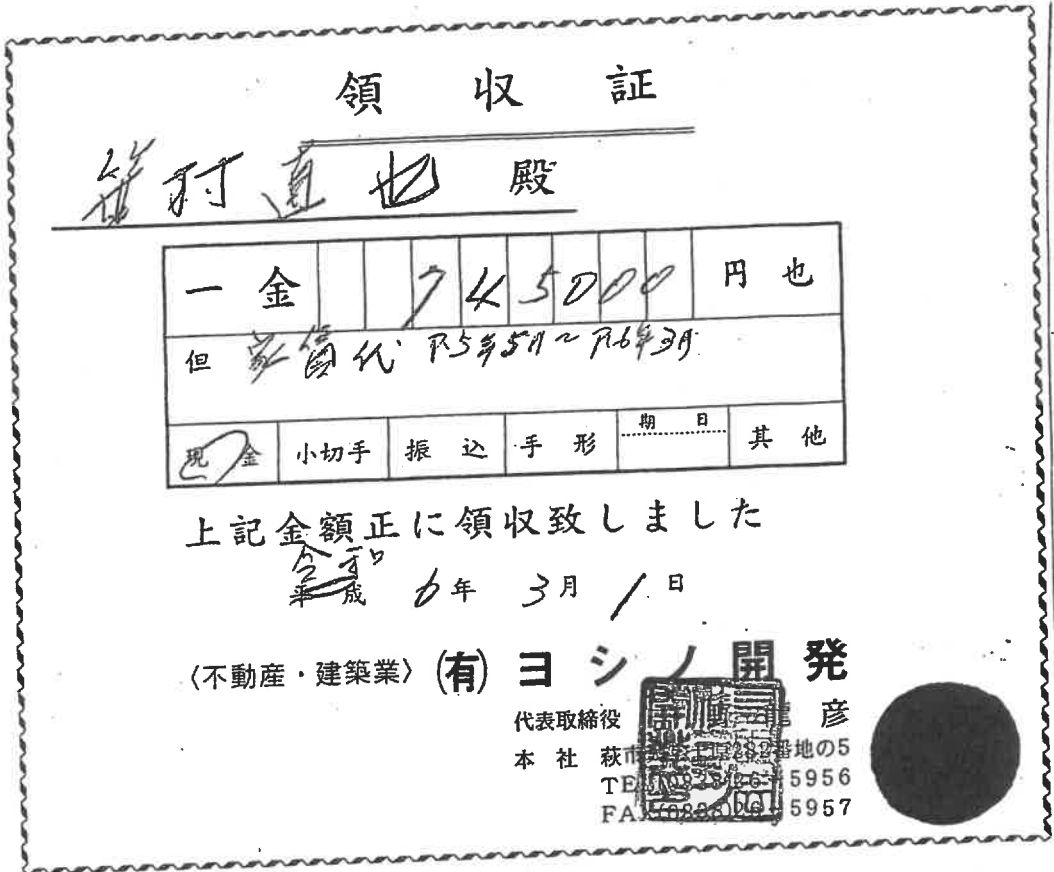 領収証
笹村直也 殿
一金 745000 円也
但 家賃代 R5年5月~R6年3月
現金 小切手 振込 手形 期日 其他
上記金額正に領収致しました
令和
平成 6年 3月 1日
〈不動産・建築業〉 (有) ヨシノ開発
代表取締役 彦
本社 萩市 282番地の5
TEL(0838)26-5956
FAX(0838)26-5957